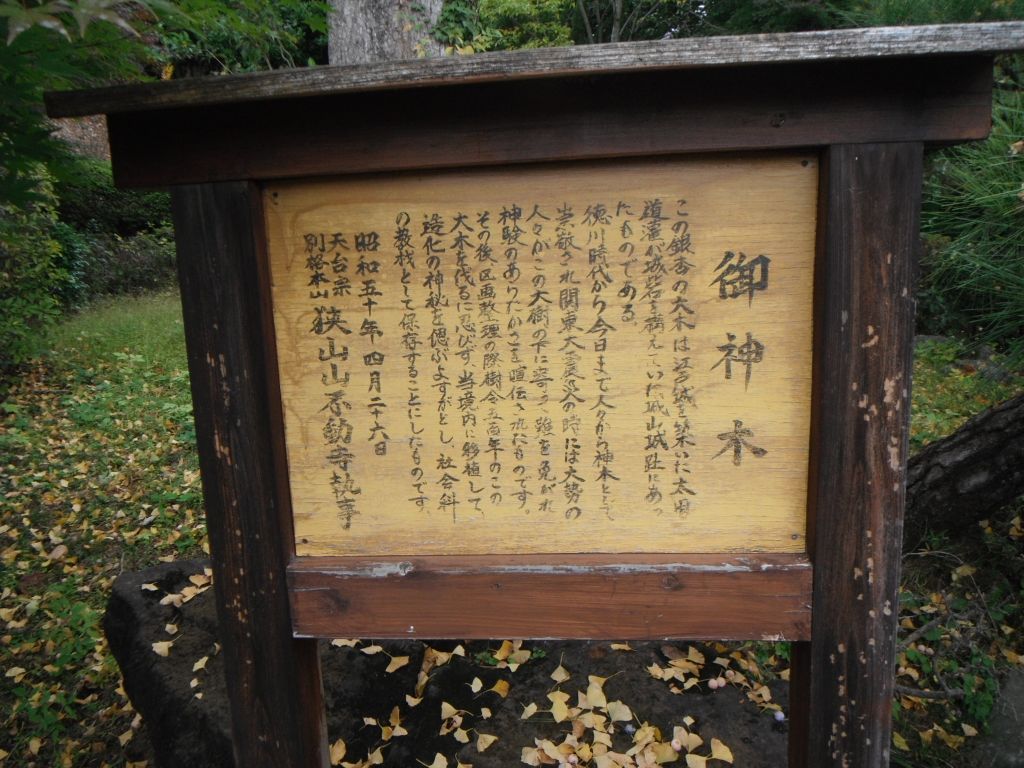 御神木
この銀杏の大木は江戸城を築いた太田
道灌が城砦を構えていた城山城趾にあっ
たものである
徳川時代から今日まで人々から神木として
崇敬され関東大震災の時には大勢の
人々がこの大樹の下に寄り難を免がれ
神験のありたかさを喧伝されたものです。
その後、区画整理の際樹令五百年のこの
大木を伐るに忍びず、当境内に移植して、
造化の神秘を偲ぶよすがとし、社会科
の教材として保存することにしたものです。
昭和五十年四月二十六日
天台宗
別格本山 狭山山不動寺執事